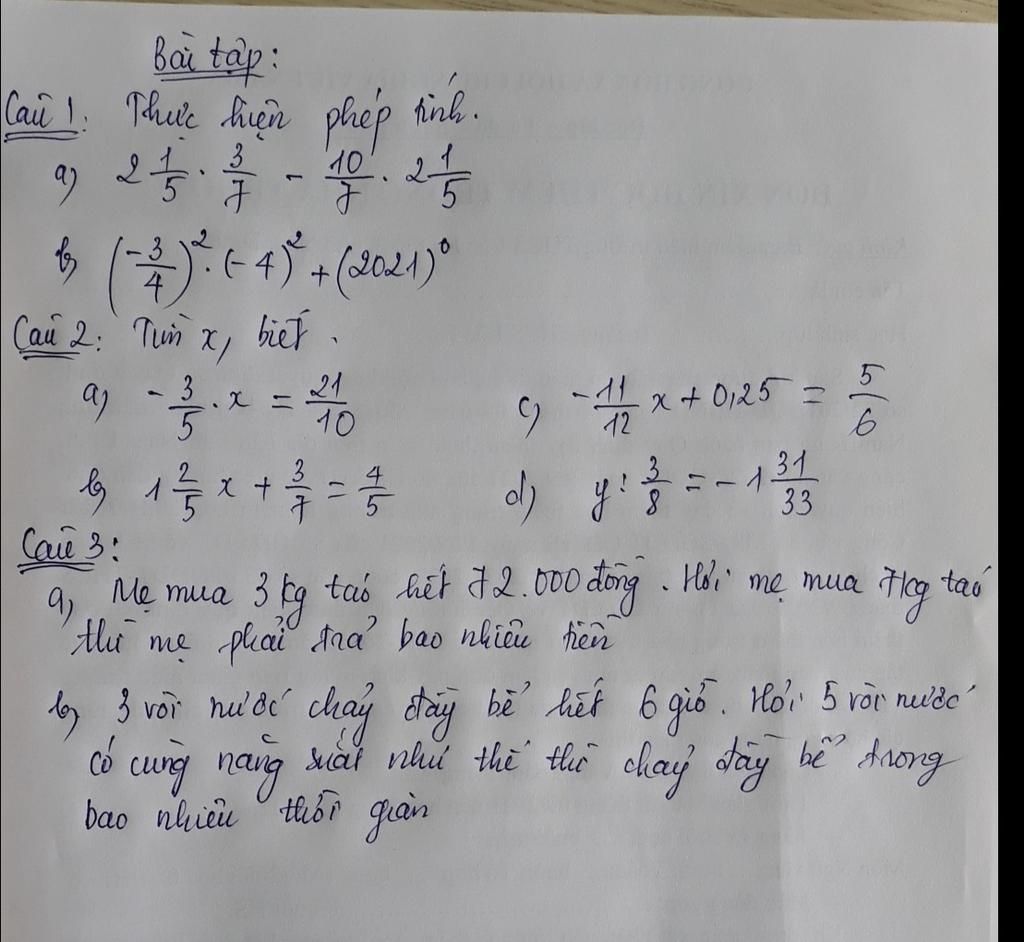 Bài tập:
Câu 1: Thực hiện phép tính.
a) 2 1/5 · 3/7 - 10/7 · 2 1/5
b) (-3/4)² · (-4)² + (2021)⁰
Câu 2: Tìm x, biết.
a) -3/5 · x = 21/10 c) -11/12 x + 0,25 = 5/6
b) 1 2/5 x + 3/7 = 4/5 d) y : 3/8 = -1 31/33
Câu 3:
a) Mẹ mua 3 kg táo hết 72.000 đồng. Hỏi mẹ mua 7kg táo
thì mẹ phải trả bao nhiêu tiền
b) 3 vòi nước chảy đầy bể hết 6 giờ. Hỏi 5 vòi nước
có cùng năng suất như thế thì chảy đầy bể trong
bao nhiêu thời gian